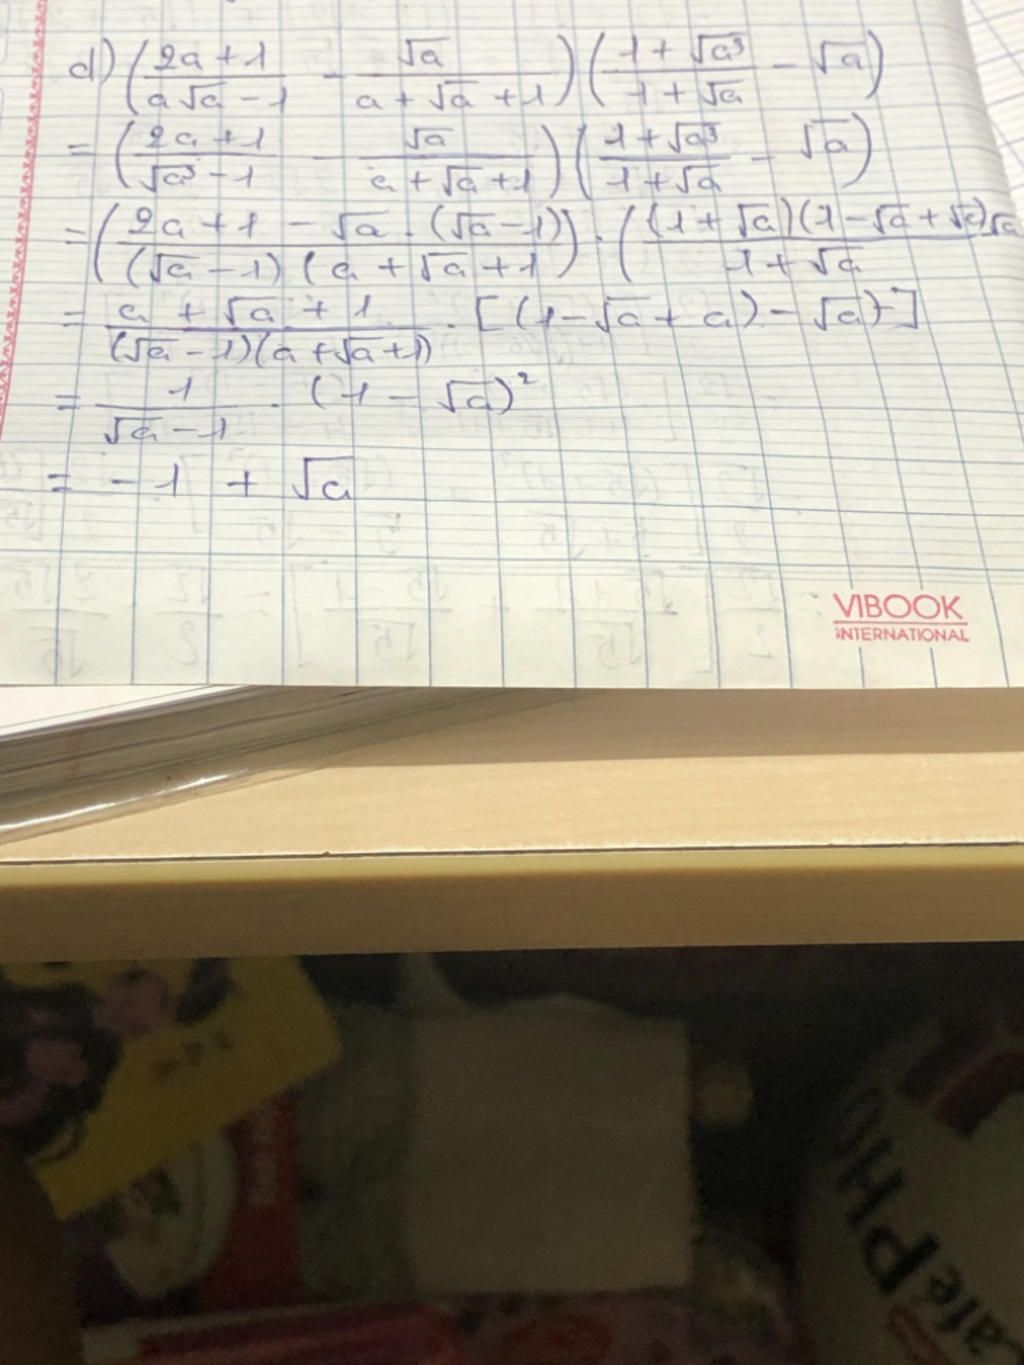 d) (2a + 1 / a√a - 1 - √a / a + √a + 1) (1 + √a³ / 1 + √a - √a)
= (2a + 1 / √a³ - 1 - √a / a + √a + 1) (1 + √a³ / 1 + √a - √a)
= (2a + 1 - √a . (√a - 1) / (√a - 1) (a + √a + 1)) . ((1 + √a)(1 - √a + √a) √a / 1 + √a
= a + √a + 1 / (√a - 1)(a + √a + 1) . [(1 - √a + a) - √a)]
= 1 / √a - 1 . (1 - √a)²
= - 1 + √a
VIBOOK
INTERNATIONAL